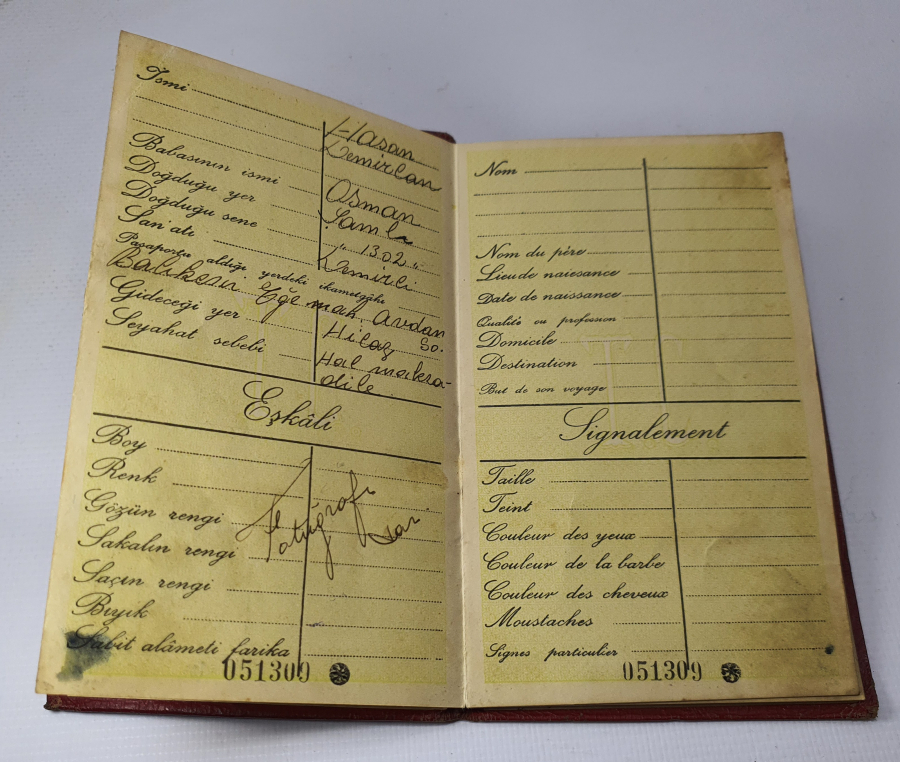 İsmi Hasan
Demircan
Babasının ismi Osman
Doğduğu yer Şamlı
Doğduğu sene " 1302 "
San'ati Demirci
Pasaportu aldığı yerdeki ikametgâhı
Balıkesir Eğe mah. Avdan So.
Gideceği yer Hicaz
Seyahat sebebi
Eşkâli
Boy
Renk
Gözün rengi
Sakalın rengi
Saçın rengi
Bıyık
Sabit alâmeti farika
Fotuğrafı var
051309
Nom
Nom du père
Lieu de naiesance
Date de naissance
Qualité ou profession
Domicile
Destination
But de son voyage
Signalement
Taille
Teint
Couleur des yeux
Couleur de la barbe
Couleur des cheveux
Moustaches
Signes particulier
051309